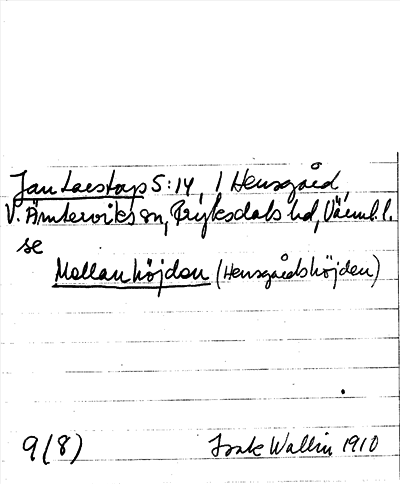 Jan Larstorp 5:14, 1 Hensgård,
V. Ämterviks sn, Fryksdals hd, Värml. l.
se
Mellanhöjden (Hensgårdshöjden)
9(8) Isak Wallin 1910